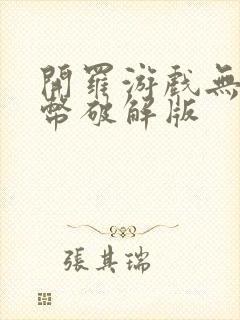 開羅游戲無
幣破解版
張其瑞